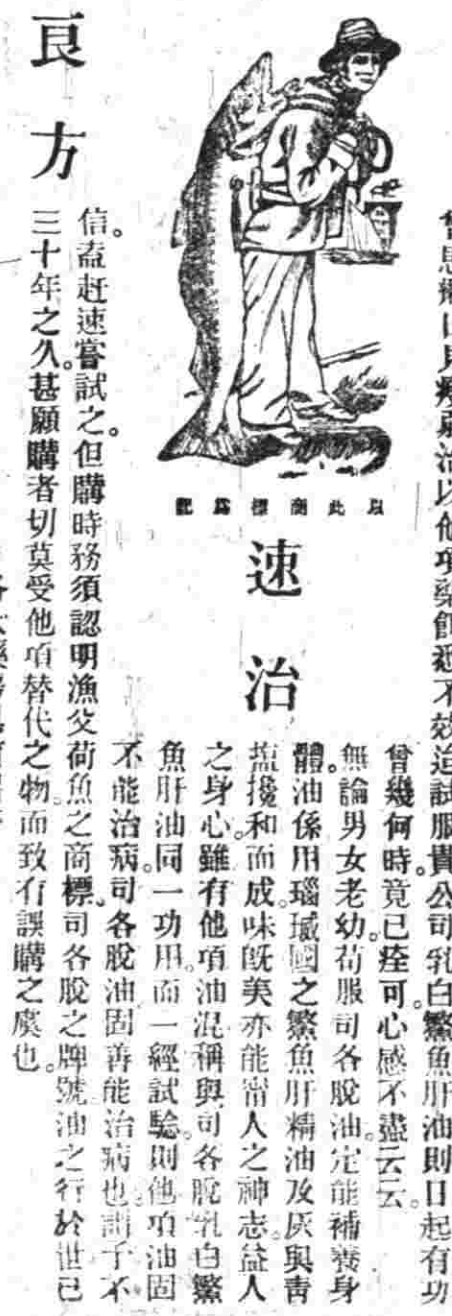 速治
良方
以此商標爲記
曾患癆日見疲弱治以他項藥餌迄不效迨試服貴公司乳白鱉魚肝油則日起有功
曾幾何時。竟已痊可。心感不盡云云。
無論男女老幼。苟服司各脫油。定能補養身
體。油係用瑙威國之鱉魚肝精油及灰與靑
鹽攙和而成。味旣美亦能甯人之神志。益人
之身心。雖有他項油混稱與司各脫乳白鱉
魚肝油同一功用。而一經試驗。則他項油固
不能治病。司各脫油固善能治病也。謂予不
信。盍赶速嘗試之。但購時務須認明漁父荷魚之商標。司各脫之牌號。油之行於世已
三十年之久。甚願購者切莫受他項替代之物。而致有誤購之虞也。